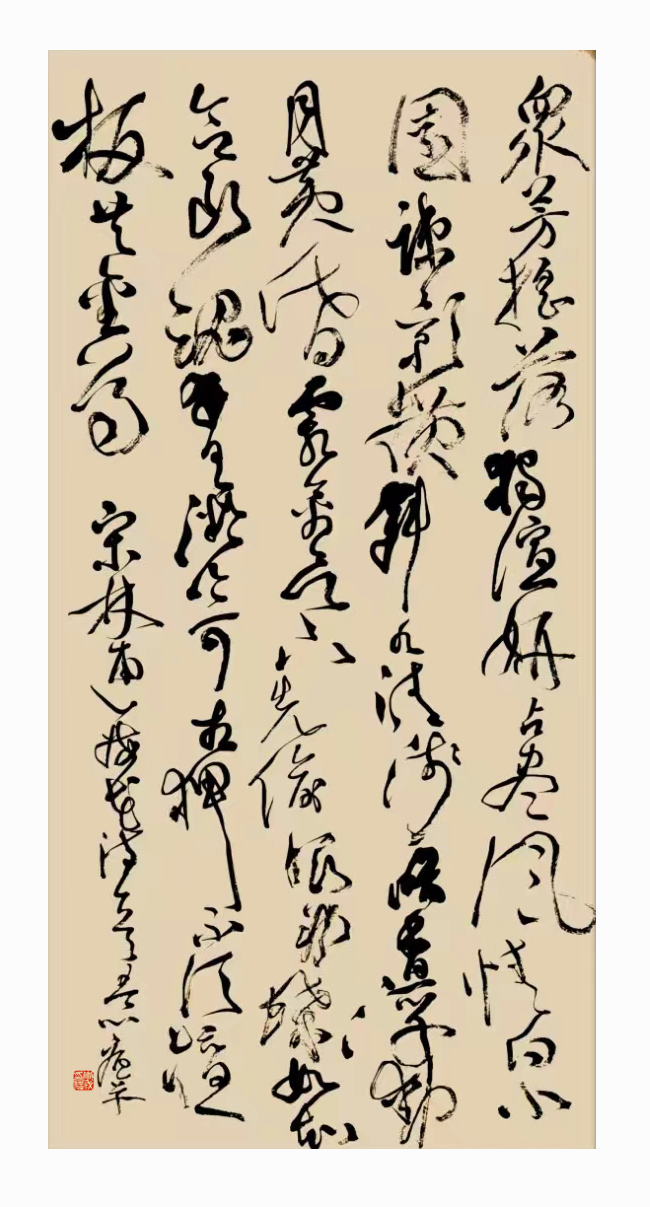 眾芳搖落獨暄妍占盡風情向小
園疎影橫斜水清淺暗香浮動
月黃昏霜禽欲下先偷眼粉蝶如知
合斷魂幸有微吟可相狎不須檀
板共金尊 宋林逋梅花詩